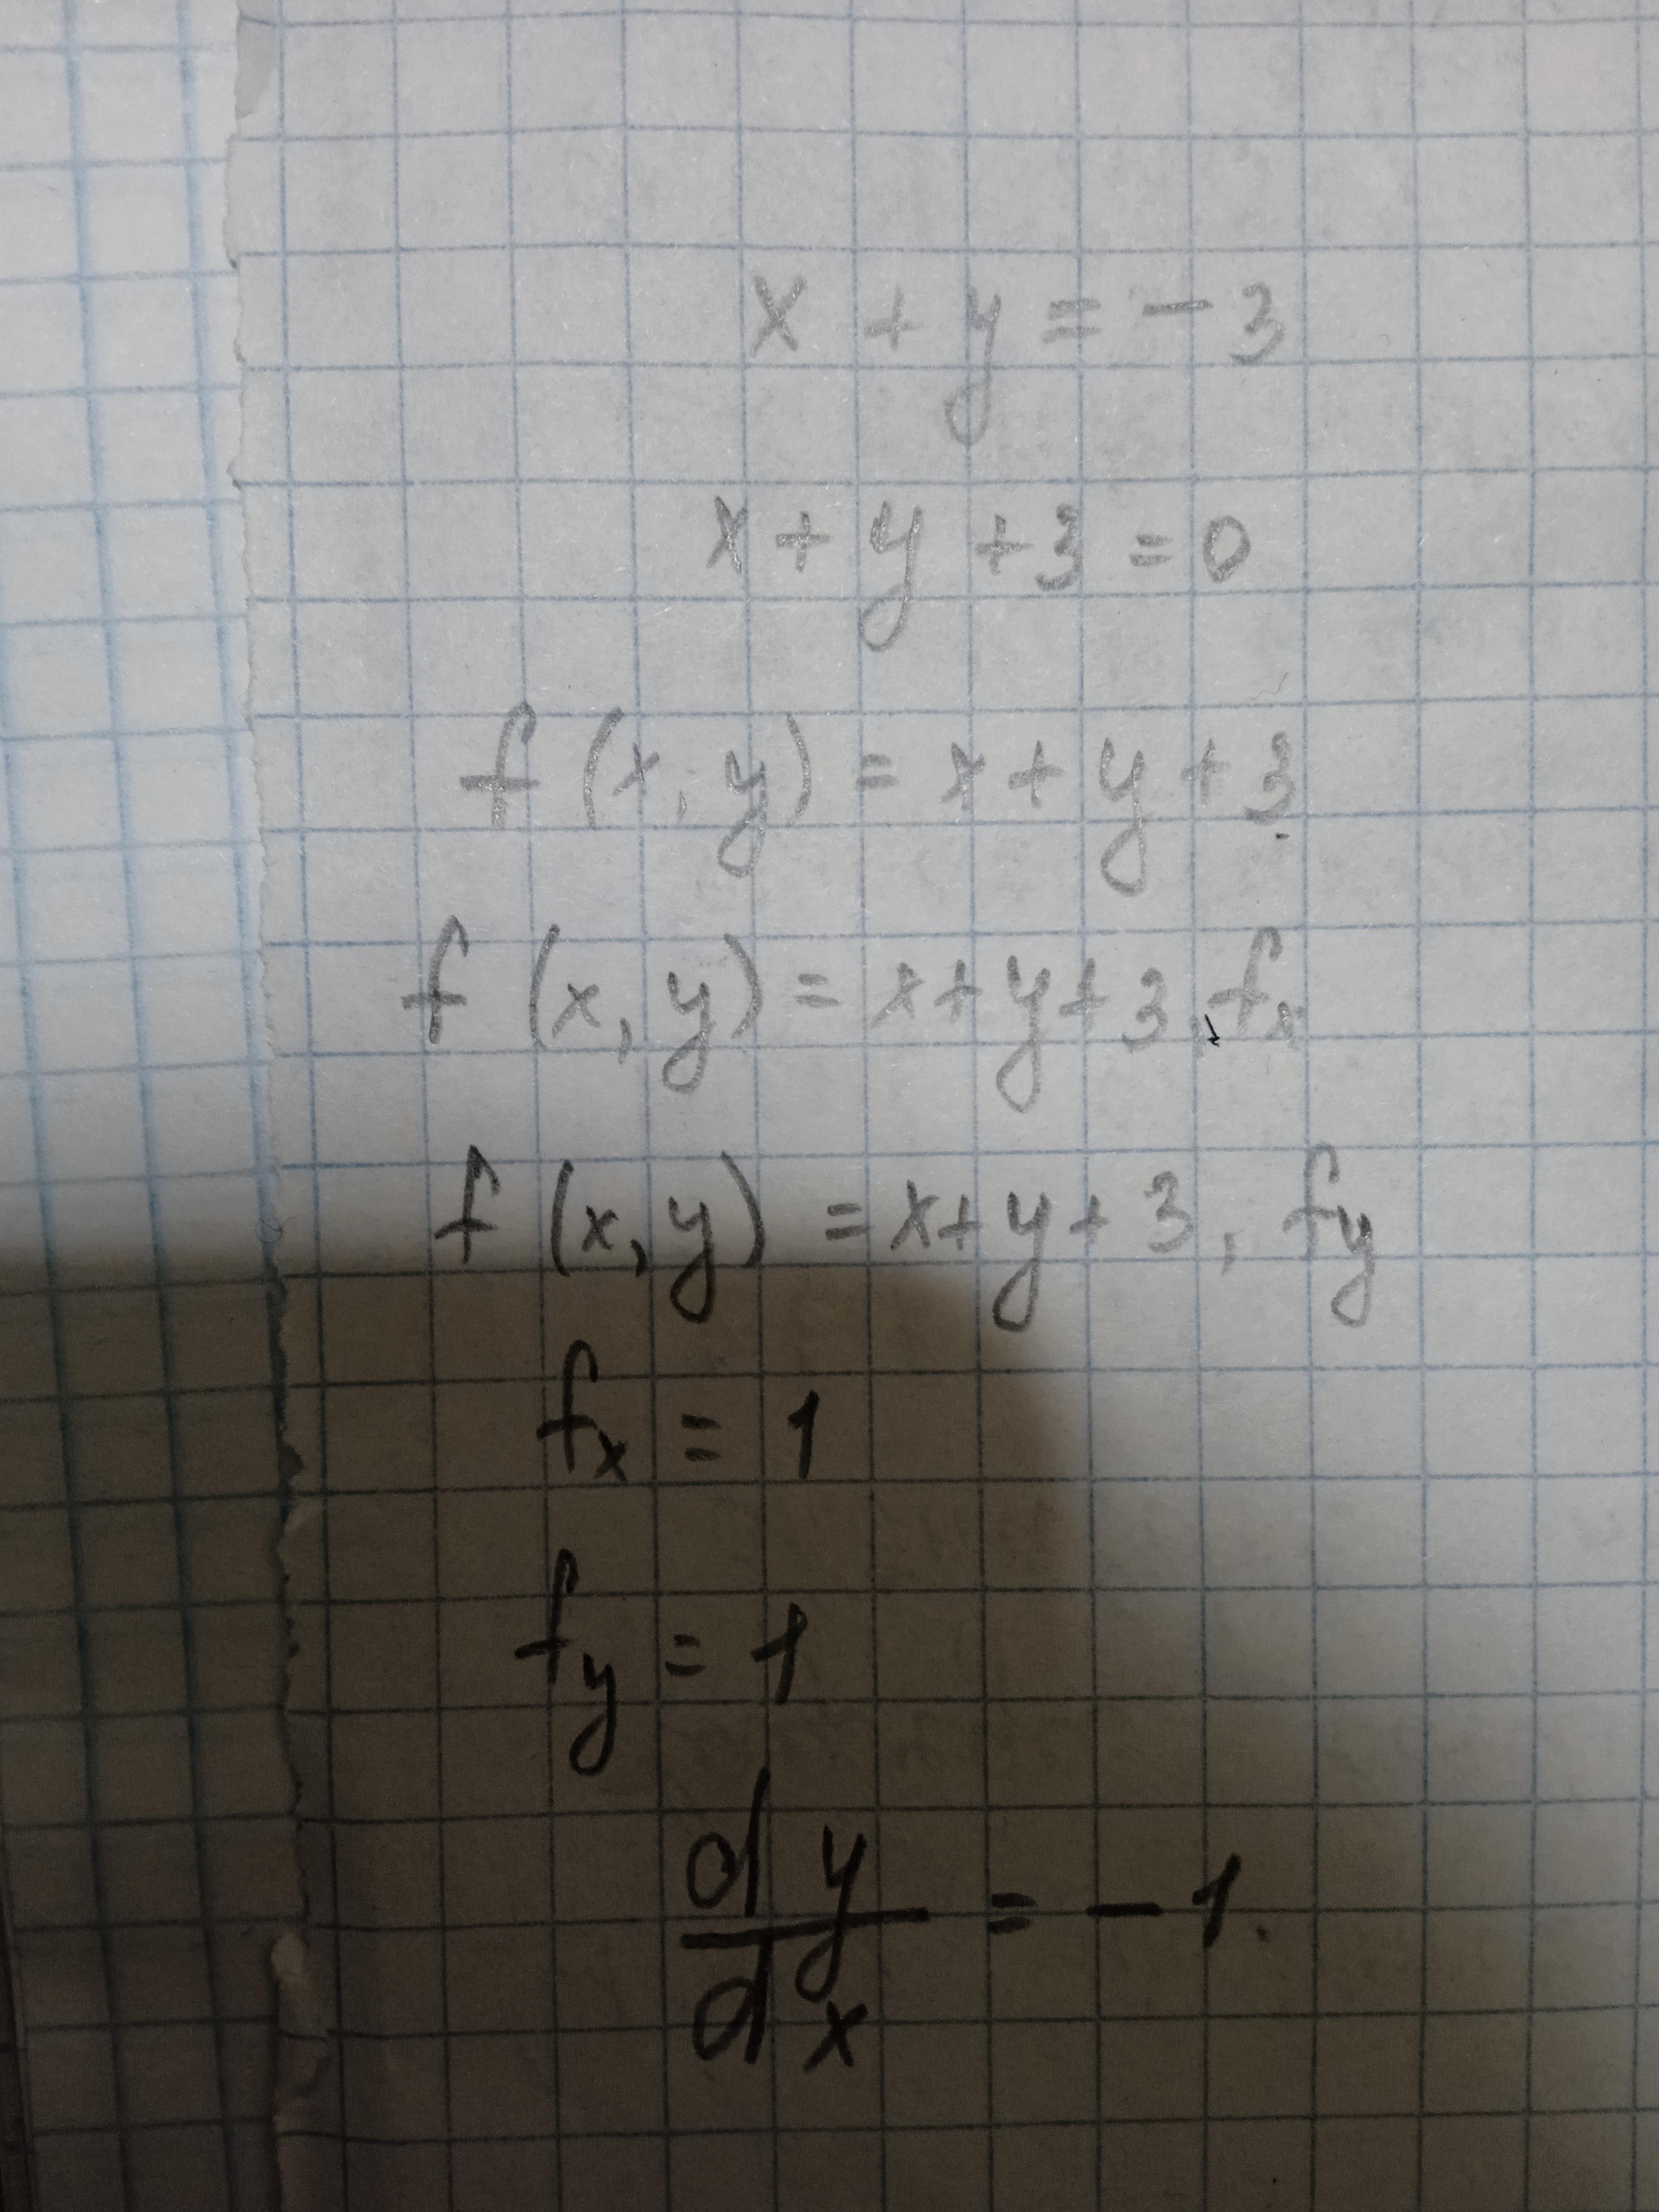 x + y = - 3
x + y + 3 = 0
f (x, y) = x + y + 3
f (x, y) = x + y + 3, fx
f (x, y) = x + y + 3, fy
fx = 1
fy = 1
dy/dx = - 1.